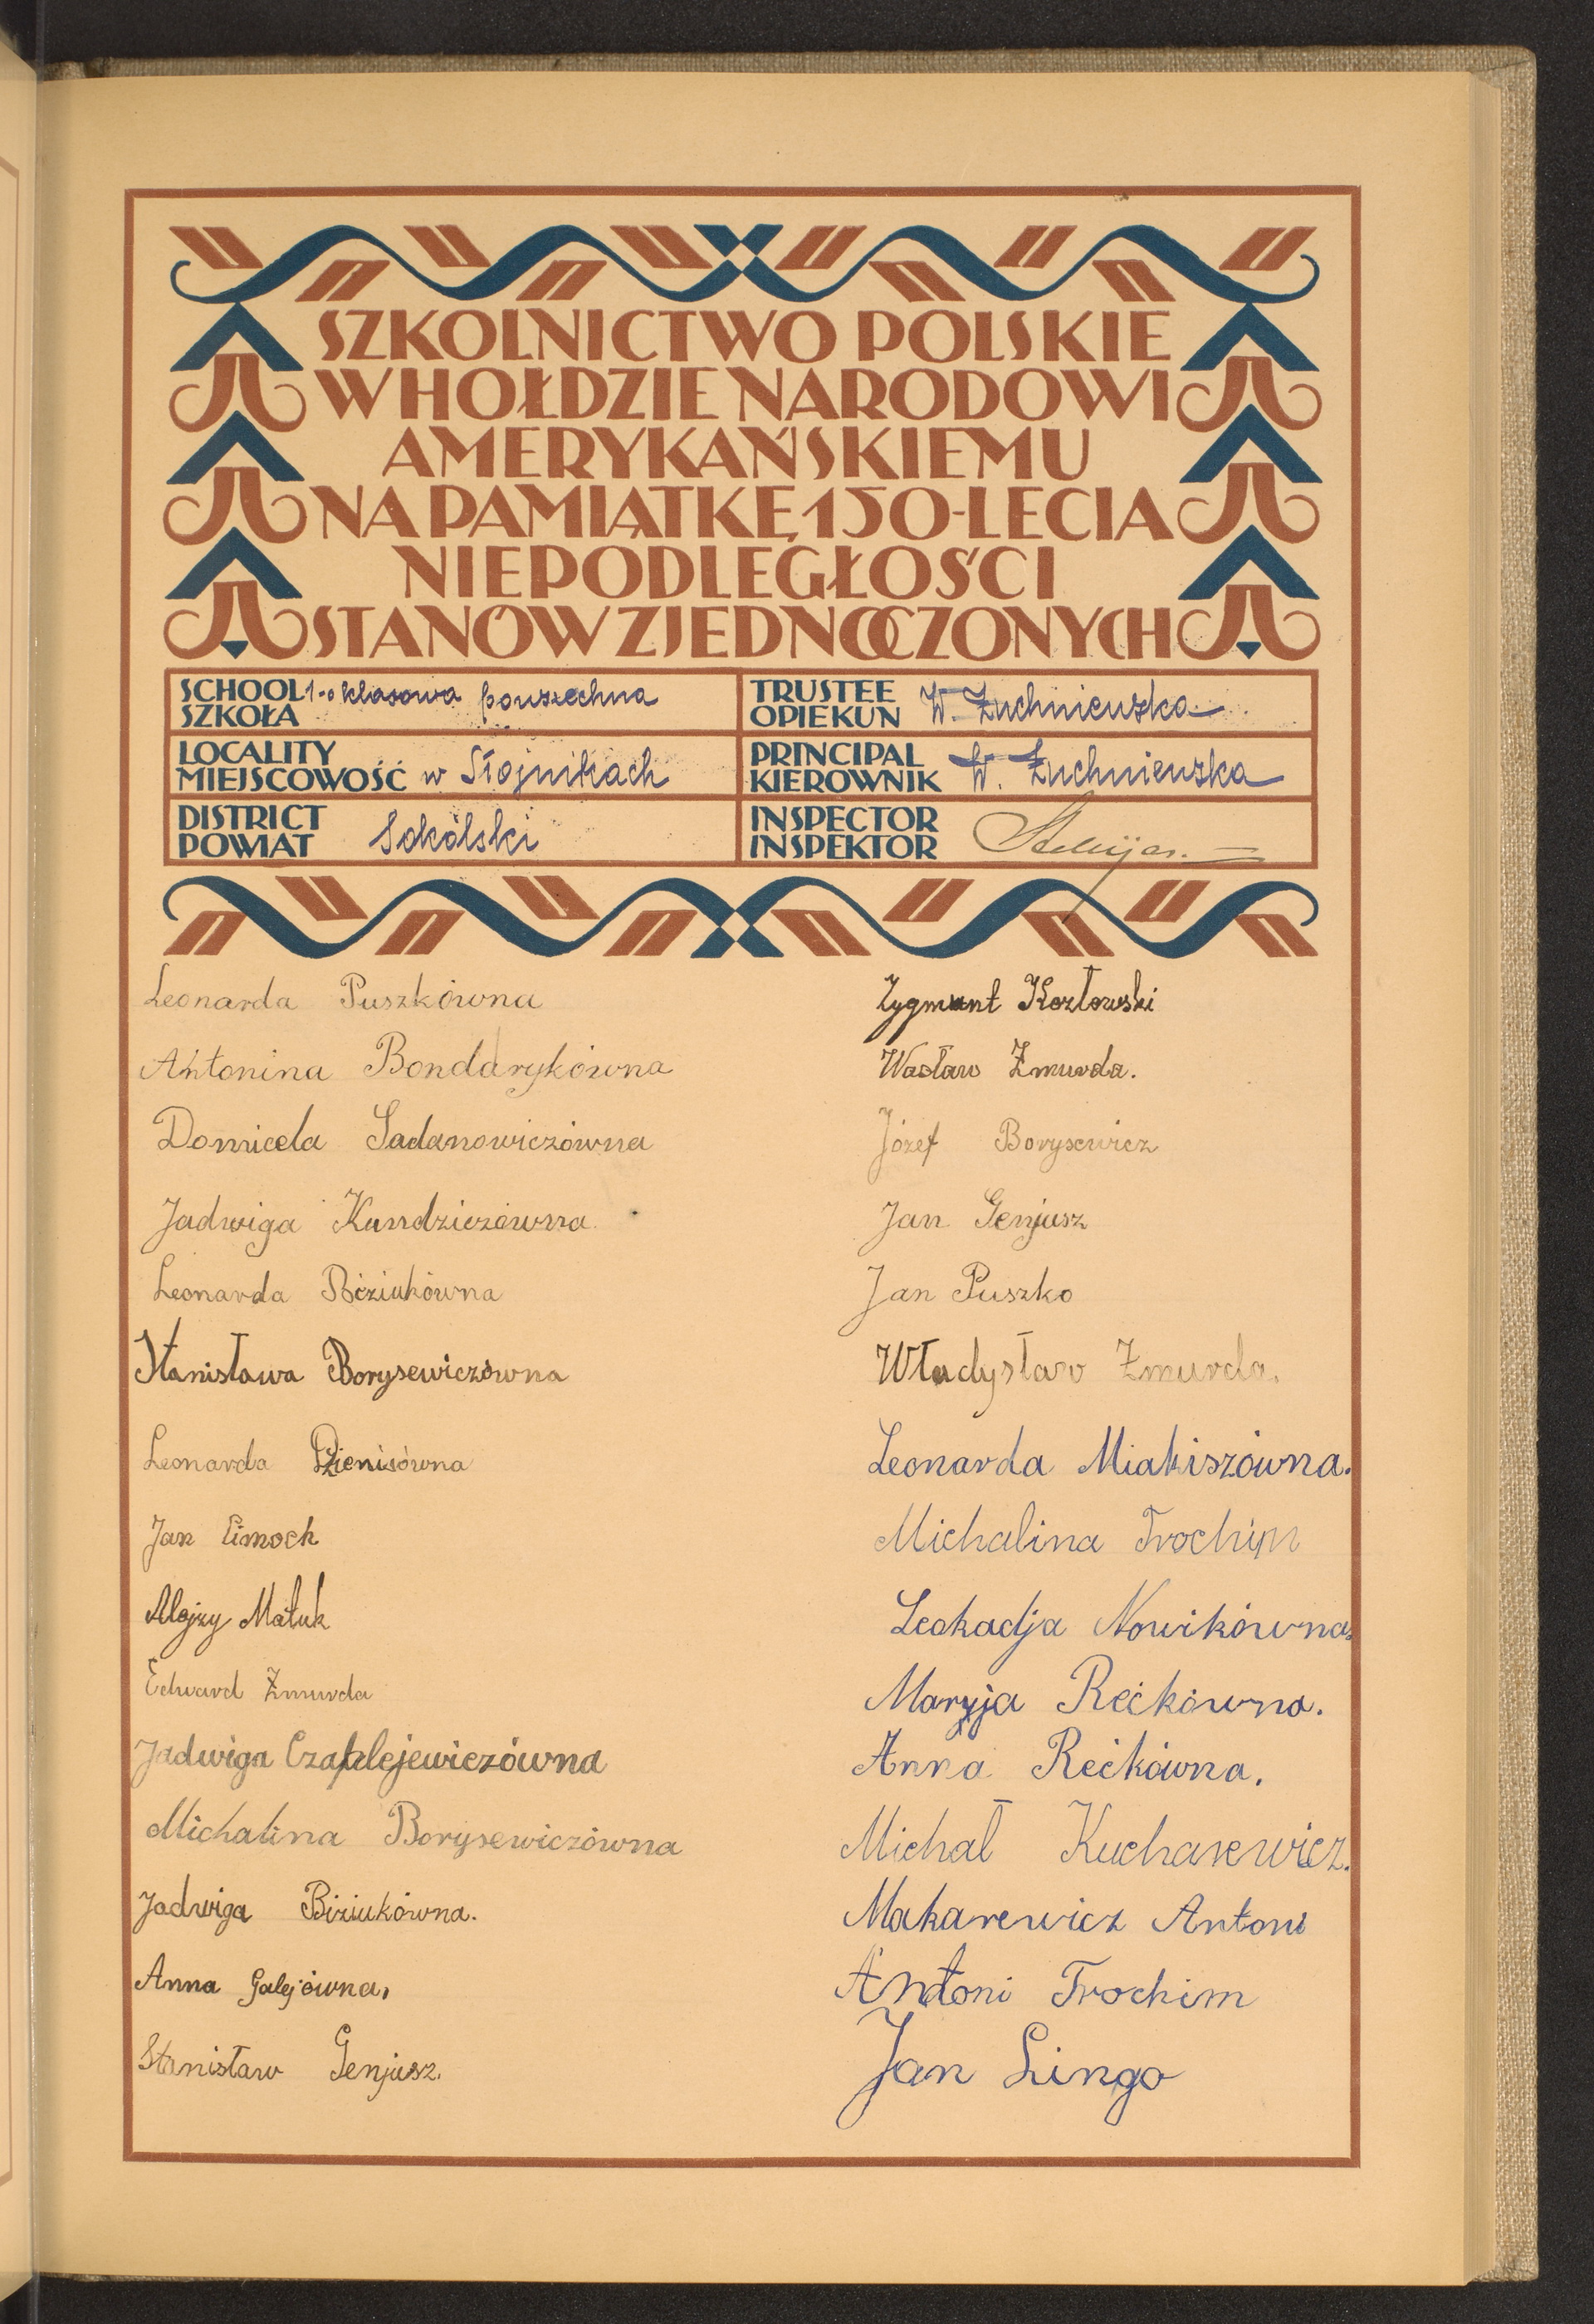 SZKOLNICTWO POLSKIE
W HOŁDZIE NARODOWI
AMERYKAŃSKIEMU
NA PAMIĄTKĘ 150-LECIA
NIEPODLEGŁOŚCI
STANÓW ZJEDNOCZONYCH
SCHOOL
SZKOŁA 1-o klasowa powszechna
TRUSTEE
OPIEKUN W. Żuchniewska
LOCALITY
MIEJSCOWOŚĆ w Słojnikach
PRINCIPAL
KIEROWNIK W. Żuchniewska
DISTRICT
POWIAT Sokólski
INSPECTOR
INSPEKTOR
Leonarda Puszkówna
Antonina Bondarykówna
Domicela Sadanowiczówna
Jadwiga Kundziczówna
Leonarda Biziukówna
Stanisława Borysewiczówna
Leonarda Dzienisówna
Jan Eimoch
Alojzy Matuk
Edward Żmurda
Jadwiga Czaplejewiczówna
Michalina Borysewiczówna
Jadwiga Biziukówna.
Anna Galejówna,
Stanisław Genjusz.
Zygmunt Kozłowski
Wacław Żmurda.
Józef Borysewicz
Jan Genjusz
Jan Puszko
Władysław Żmurda.
Leonarda Miakiszówna.
Michalina Trochim
Leokadja Nowikówna.
Maryja Rećkówna.
Anna Rećkówna.
Michał Kucharewicz.
Makarewicz Antoni
Antoni Trochim
Jan Lingo